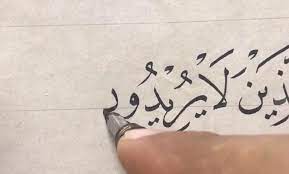 ذِيْنَ لَا يُرِيْدُو